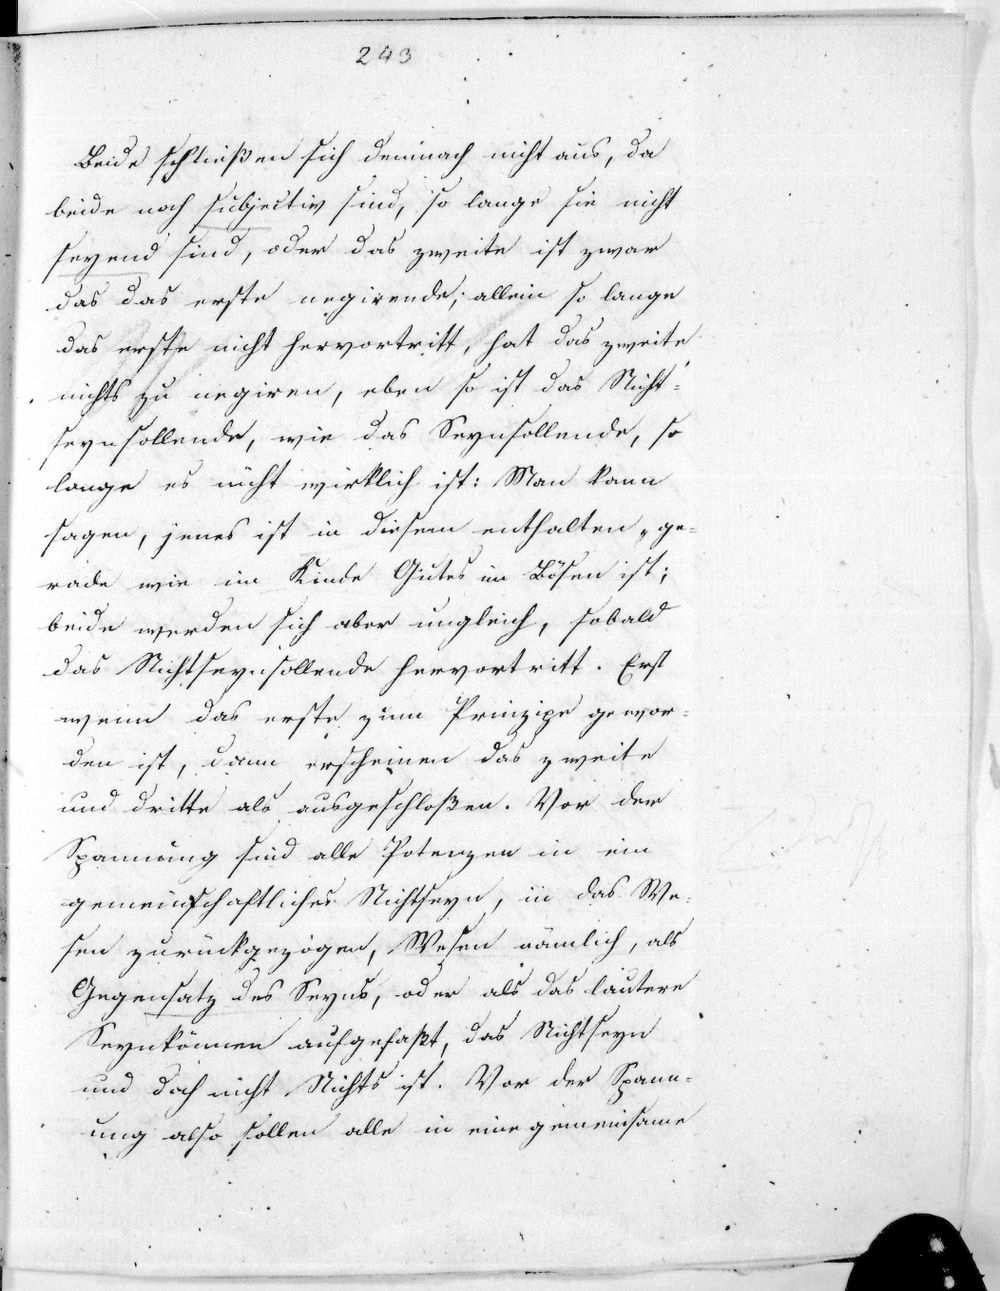 243
Beide schließen sich demnach nicht aus, da
beide noch subjectiv sind, so lange sie nicht
seyend sind, oder das zweite ist zwar
das das erste negirende; allein so lange
das erste nicht hervortritt, hat das zweite
nichts zu negiren, eben so ist das Nicht-
seynsollende, wie das Seynsollende, so
lange es nicht wirklich ist: Man kann
sagen, jenes ist in diesem enthalten, ge-
rade wie im Kinde Gutes im Bösen ist;
beide werden sich aber ungleich, sobald
das Nichtseynsollende hervortritt. Erst
wenn das erste zum Prinzipe gewor-
den ist, dann erscheinen das zweite
und dritte als ausgeschloßen. Vor der
Spannung sind alle Potenzen in ein
gemeinschaftliches Nichtseyn, in das We-
sen zurückgezogen, Wesen nämlich, als
Gegensatz des Seyns, oder als das lautere
Seynkönnen aufgefaßt, das Nichtseyn
und doch nicht Nichts ist. Vor der Spann-
ung also sollen alle in eine gemeinsame